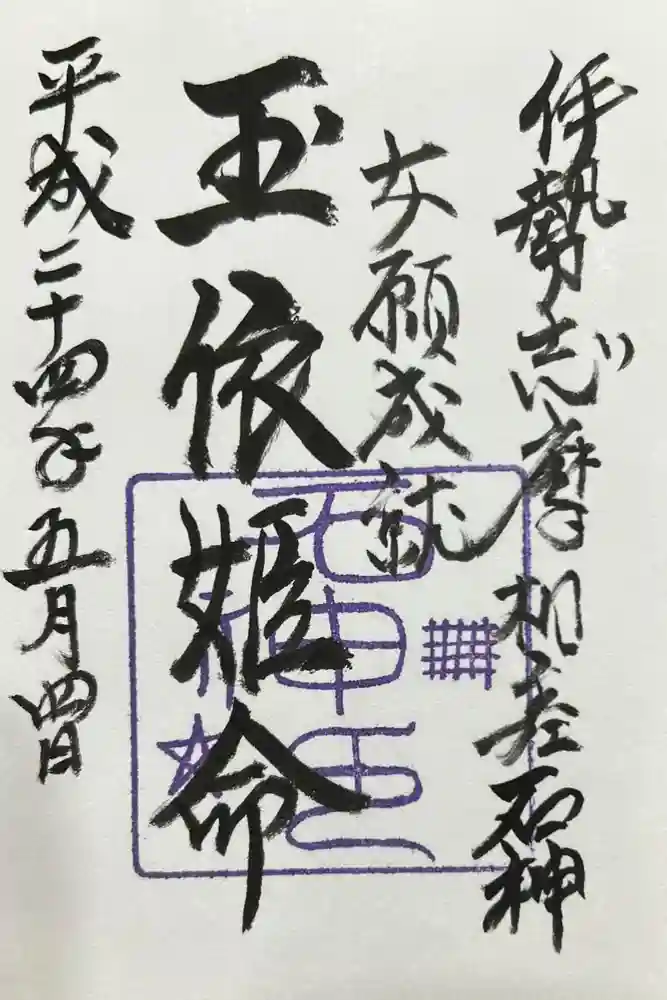 伊勢志摩相差石神
女願成就
玉依姫命
平成二十四年五月四日
石神